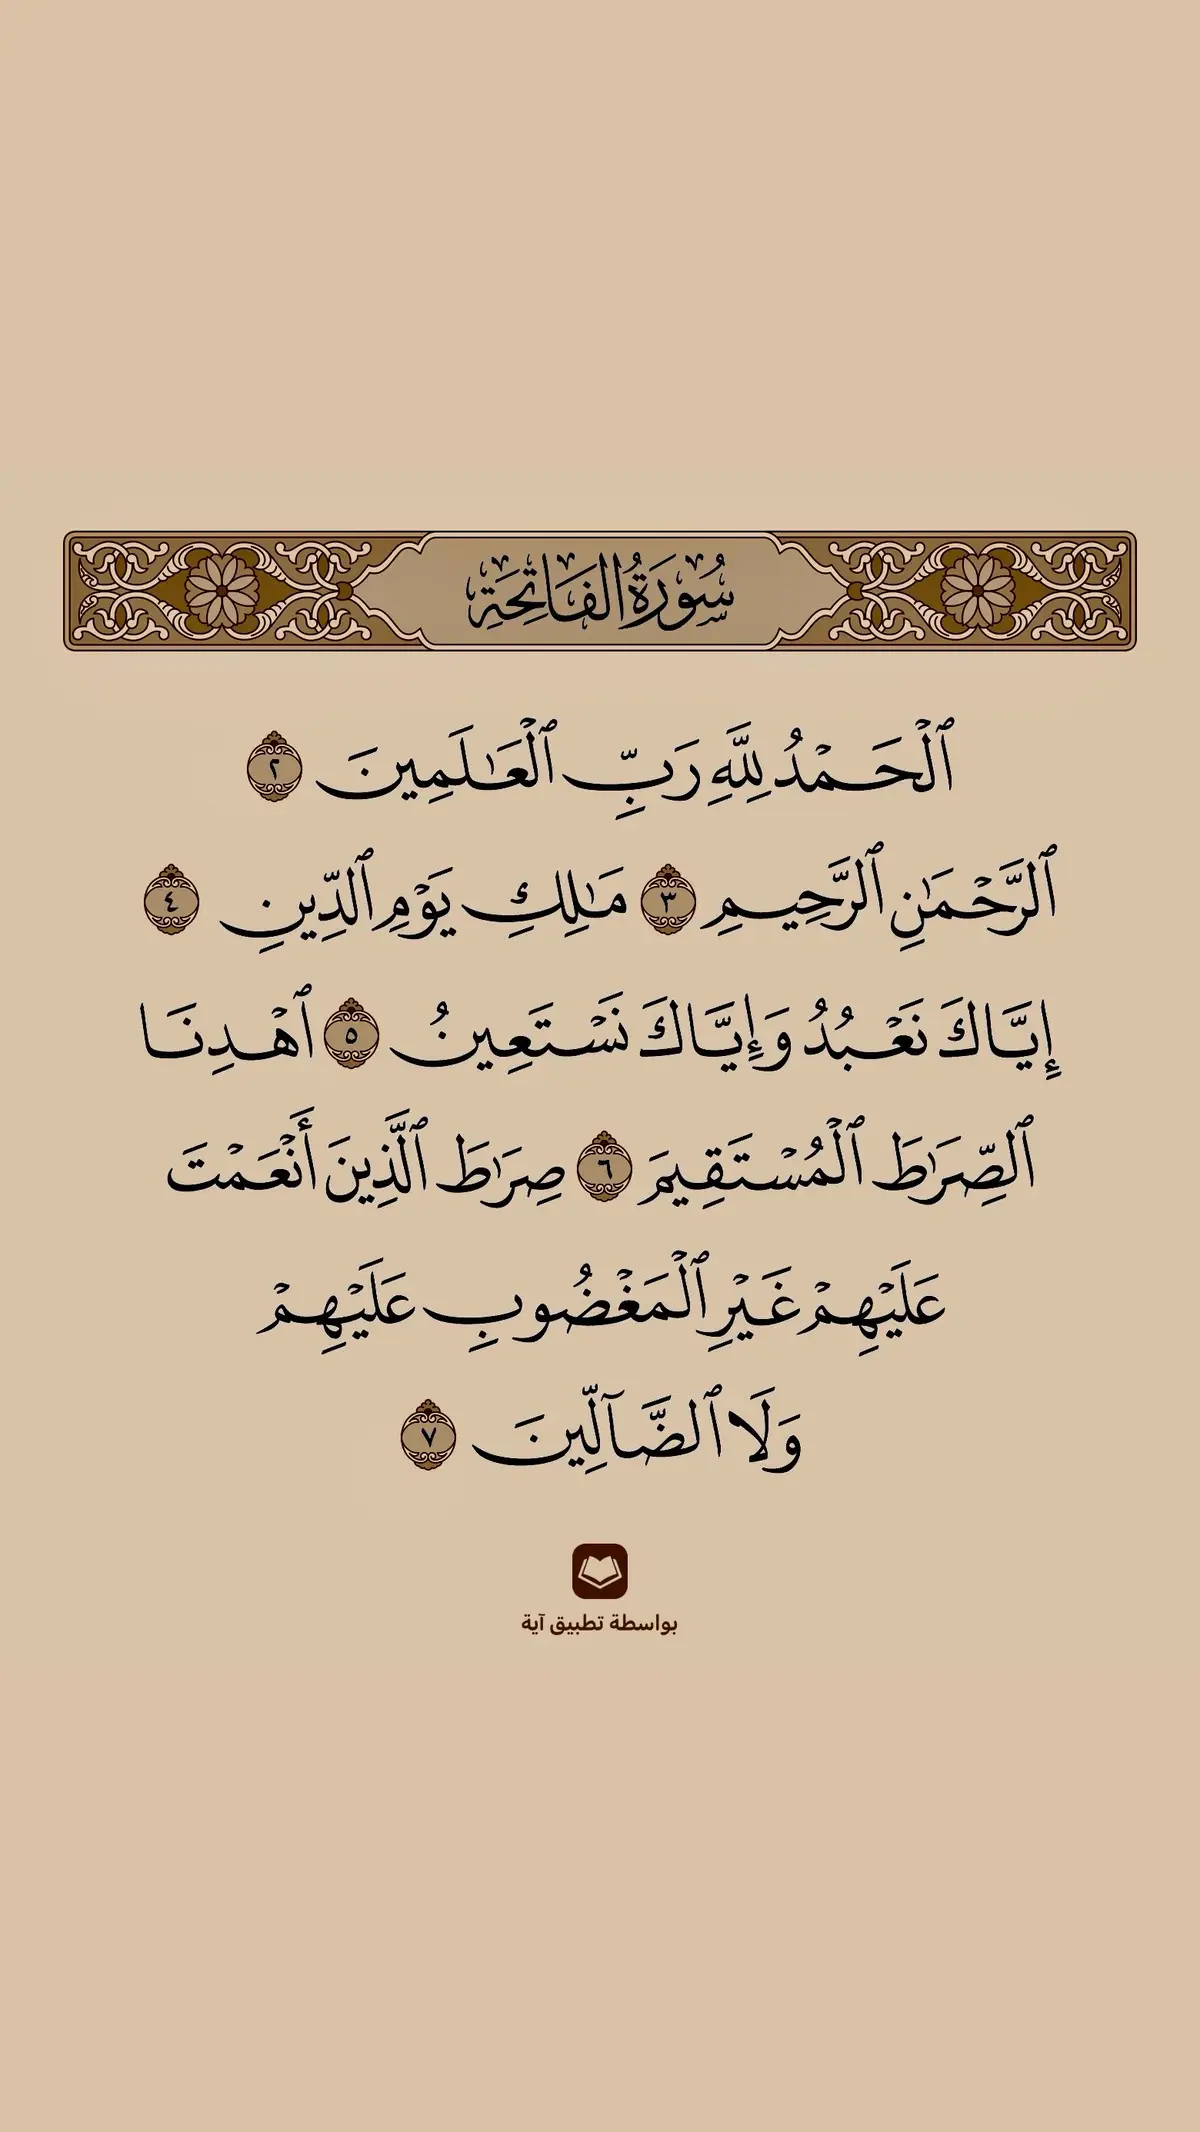 سُورَةُ الفَاتِحَةِ
ٱلۡحَمۡدُ لِلَّهِ رَبِّ ٱلۡعَٰلَمِينَ ٢
ٱلرَّحۡمَٰنِ ٱلرَّحِيمِ ٣ مَٰلِكِ يَوۡمِ ٱلدِّينِ ٤
إِيَّاكَ نَعۡبُدُ وَإِيَّاكَ نَسۡتَعِينُ ٥ ٱهۡدِنَا
ٱلصِّرَٰطَ ٱلۡمُسۡتَقِيمَ ٦ صِرَٰطَ ٱلَّذِينَ أَنۡعَمۡتَ
عَلَيۡهِمۡ غَيۡرِ ٱلۡمَغۡضُوبِ عَلَيۡهِمۡ
وَلَا ٱلضَّآلِّينَ ٧
بواسطة تطبيق آية